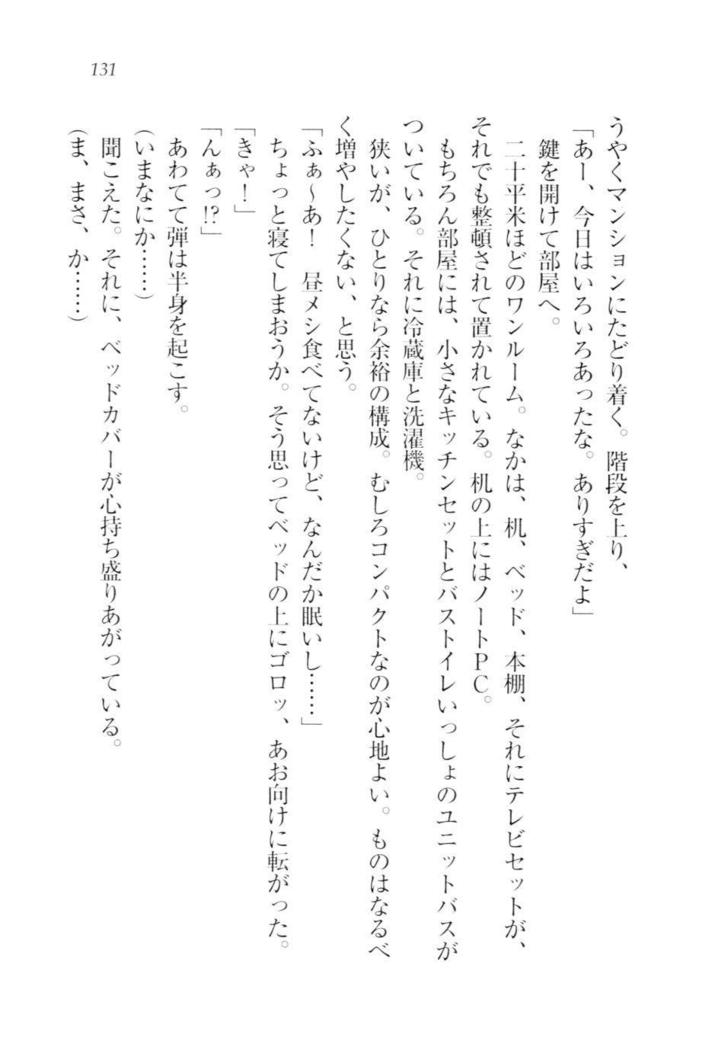 131
うやくマンションにたどり着く。階段を上り、
「あー、今日はいろいろあったな。ありすぎだよ」
鍵を開けて部屋へ。
二十平米ほどのワンルーム。なかは、机、ベッド、本棚、それにテレビセットが、
それでも整頓されて置かれている。机の上にはノートPC。
もちろん部屋には、小さなキッチンセットとバストイレいっしょのユニットバスが
ついている。それに冷蔵庫と洗濯機。
狭いが、ひとりなら余裕の構成。むしろコンパクトなのが心地よい。ものはなるべ
く増やしたくない、と思う。
「ふぁ～あ！　昼メシ食べてないけど、なんだか眠いし……」
ちょっと寝てしまおうか。そう思ってベッドの上にゴロッ、あお向けに転がった。
「きゃ！」
「んぁっ!?」
あわてて弾は半身を起こす。
（いまなにか……）
聞こえた。それに、ベッドカバーが心持ち盛りあがっている。
（ま、まさ、か……）